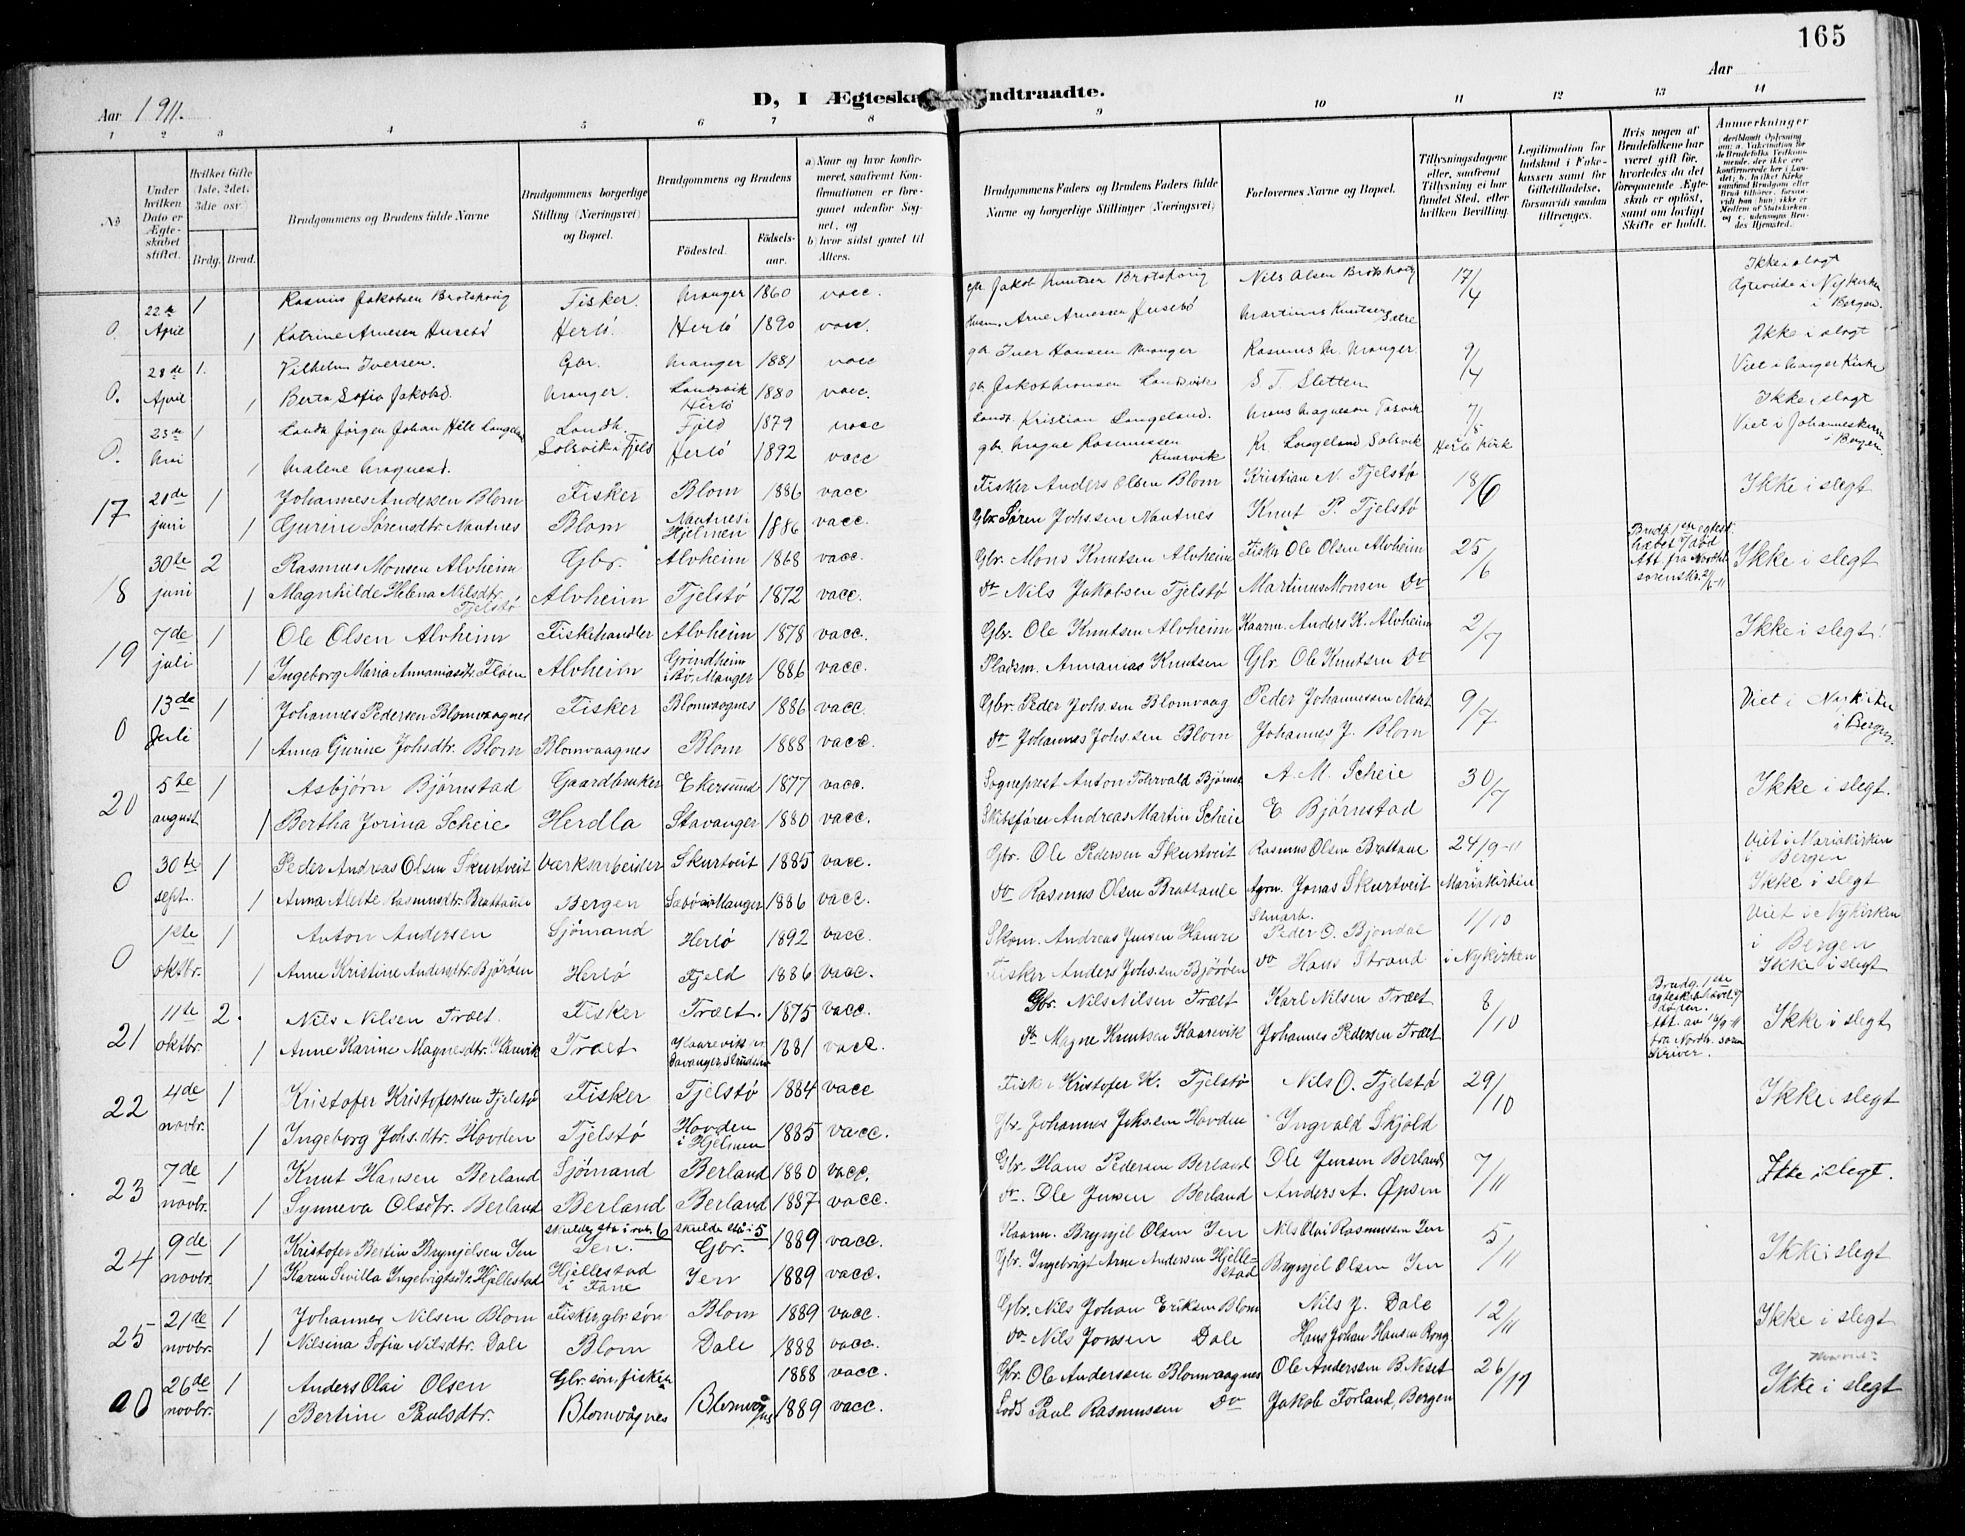 165
Aar 1911.
Aar
D, I Ægteska ndtraadte.
1 2 3 4 5 6 7 8 9 10 11 12 13 14
No
Under hvilken Dato er Ægteskabet stiftet.
Hvilket Gifte (1ste, 2det, 3die osv.)
Brdg. Brud.
Brudgommens og Brudens fulde Navne
Brudgommens borgerlige Stilling (Næringsvei) og Bopæl.
Brudgommens og Brudens
Födested. Födsels-aar.
a) Naar og hvor konfirmeret, saafremt Konfirmationen er foregaaet udenfor Sognet, og
b) hvor sidst gaaet til Alters.
Brudgommens Faders og Brudens Faders fulde Navne og borgerlige Stillinger (Næringsvei)
Forlovernes Navne og Bopæl.
Tillysningsdagene eller, saafremt Tillysning ei har fundet Sted, efter hvilken Bevilling.
Legitimation for Indskud i Enkekassen samt for Giftetilladelse, forsaavidt saadan tiltrænges.
Hvis nogen af Brudefolkene har været gift för, hvorledes da det foregaaende Ægteskab er oplöst, samt om lovligt Skifte er holdt.
Anmærkninger
0. 22de April 1 Rasmus Jakobsen Brotshoug Fisker. Manger 1860 vacc. Jakob Knutsen Brotshoug Nils Olsen Brotshoug 17/4 Ikke i slegt
1 Katrine Arnesen Husebö Herlö. Herlö 1890 vacc. Husm. Arne Arnessen Husebö Martinus Knutsen Sætre i Nykirken i Bergen.
0. 28de April 1. Vilhelm Iversen. Gbr. Manger 1881 vacc gb. Iver Hansen Manger Rasmus M. Manger. 9/4 Ikke i slegt
1 Berta Sofia Jakobsd. Manger. Landsvik Herlö 1880 vacc. gb. Jakob Monsen Landsvik S. T. Sletten Viet i Manger Kirke
0. 23de Mai 1 Jörgen Johan Landh. Solsvik i Fjeld Fjeld 1879 vacc Landh. Kristian Langeland. Mons Magneson Tosvik 7/5 Ikke i slegt
1 Malene Magnesd. Herlö 1892 vacc gb. Magne Rasmussen Knarvik Kr. Langeland Solsvik Herlö Kirk Viet i Johanneskirken i Bergen.
17 20de juni 1 Johannes Andersen Blom Fisker Blom 1886 vacc Fisker Anders Olsen Blom Kristian N. Fjelstø 18/6 Ikke i slegt
1 Gurine Sørensdtr. Nautnes Blom Nautnes i Hjelmen 1886 vacc. Gbr. Søren Johssen Nautnes Knut P. Fjelstø
18 30te juni 2 Rasmus Monsen Alvheim Gbr. Alvheim 1868 vacc. Gbr. Mons Knutsen Alvheim Fisk. Ole Olsen Alvheim 25/6 Brudg. 1ste egtesk. hævet v/ død Att. fra Nordh. sorenskr. 21/6-11 Ikke i slegt
1 Magnhilde Helena Nilsdtr. Fjelstø Alvheim Fjelstø 1872 vacc. do Nils Jakobsen Fjelstø Martinus Monsen do
19 7de juli 1 Ole Olsen Alvheim Fiskehandler Alvheim 1878 vacc. Gbr. Ole Knutsen Alvheim Kaarm. Anders K. Alvheim 2/7 Ikke i slegt!
1 Ingeborg Maria Annaniasdtr. Fløen Alvheim Grindheim i Bv. Manger 1886 vacc. Pladsm. Annanias Knutsen Gbr. Ole Knutsen do
0 13de Juli 1 Johannes Pedersen Blomvaagnes Fisker Blomvaagnes 1886 vacc. Gbr. Peder Johssen Blomvaag Peder Johannessen Neset 9/7 Viet i Nykirken i Bergen.
1 Anna Gurine Johsdtr. Blom Blomvaagnes Blom 1888 vacc. do Johannes Johssen Blom Johannes J. Blom
20 5te august 1 Asbjørn Bjørnstad Gaardbruker Ekersund 1877 vacc. Sogneprest Anton Thorvald Bjørnst. A. M. Scheie 30/7 Ikke i slegt.
1 Bertha Jorina Scheie Herdla Stavanger 1880 vacc. Skibsfører Andreas Martin Scheie E Bjørnstad
0 30te sept. 1 Peder Andreas Olsen Skurtveit Værksarbeider Skurtveit 1885 vacc. Gbr. Ole Pedersen Skurtveit Rasmus Olsen Brattaule 24/9-11 Viet i Mariakirken i Bergen
1 Anna Alette Rasmusdtr. Brattaule Bergen Sæbø i Manger 1886 vacc. do Rasmus Olsen Brattaule Agrn. Jonas Skurtveit Mariakirken Ikke i slegt
0 1ste oktbr. 1 Anton Andersen Sjømand Herlø 1892 vacc. Skom. Andreas Jensen Hamre Peder O. Bjondal 1/10 Viet i Nykirken i Bergen
1 Anne Kristine Andersdtr. Bjørøen Herlø Fjeld 1886 vacc. Fisker Anders Johssen Bjørøen do Hans Strand i Nykirken Ikke i slegt
21 11te oktbr. 2. Nils Nilsen Træt. Fisker Træet. 1875 vacc. Gbr. Nils Nilsen Træet Karl Nilsen Træet 8/10 Brudg. 1ste egtesk. hævet v/ døden. Att. av 16/9-11 fra Nordh. soren skriver. Ikke i slegt
1 Anne Karine Magnesdtr. Kaarevik Træet 1881 vacc. do Magne Knutsen Kaarevik Johannes Pedersen Træet
22 4de novbr. 1 Kristofer Kristofersen Fjelstø Fisker Fjelstø 1884 vacc Fisker Kristofer K. Fjelstø Nils O. Fjelstø 29/10 Ikke i slegt
1 Ingeborg Johs.dtr. Hovden Fjelstø Hovden i Hjelmen 1885 vacc. Gbr. Johannes Johssen Hovden Ingvald Skjold
23 7de novbr. 1 Knut Hansen Berland Sjømand Berland 1880 vacc. Gbr. Hans Pedersen Berland Ole Jensen Berland 7/11 Ikke i slegt.
1 Synneva Olsdtr. Berland Berland Berland 1887 vacc. do. Ole Jensen Berland Anders A. Øpsen
24 9de novbr. 1 Kristofer Bertin Brynjelsen Jen skulde sta i rubr. 6 Jen. skulde stå i 5 Gbr. 1889 vacc. Kaarm. Brynjel Olsen Jen Nils Olai Rasmussen Jen 5/11 Ikke i slegt
1 Karen Sevilla Ingebrigtsdtr. Hjellestad Hjellestad i Fane Jen 1889 vacc. Gbr. Ingebrigt Arne Andersen Hjellestad Brynjel Olsen Jen
25 21de novbr. 1 Johannes Nilsen Blom Fisker gbr. søn Blom 1889 vacc. Gbr. Nils Johan Eriksen Blom Nils J. Dale 12/11 Ikke i slegt
1 Nilsina Sofia Nilsdtr. Dale Blom Dale 1888 vacc. do Nils Jonsen Dale Hans Johan Hansen Rong
00 26de novbr. 1 Anders Olai Olsen Gbr. søn, fisker 1888 vacc. Gbr. Ole Anderssen Blomvaagnes Ole Anderssen B. Neset 26/11 Ikke i slegt
1 Bertine Paulsdtr. Blomvågnes Blomvågnes 1889 vacc. Lods Paul Rasmussen do Jakob Forland, Bergen